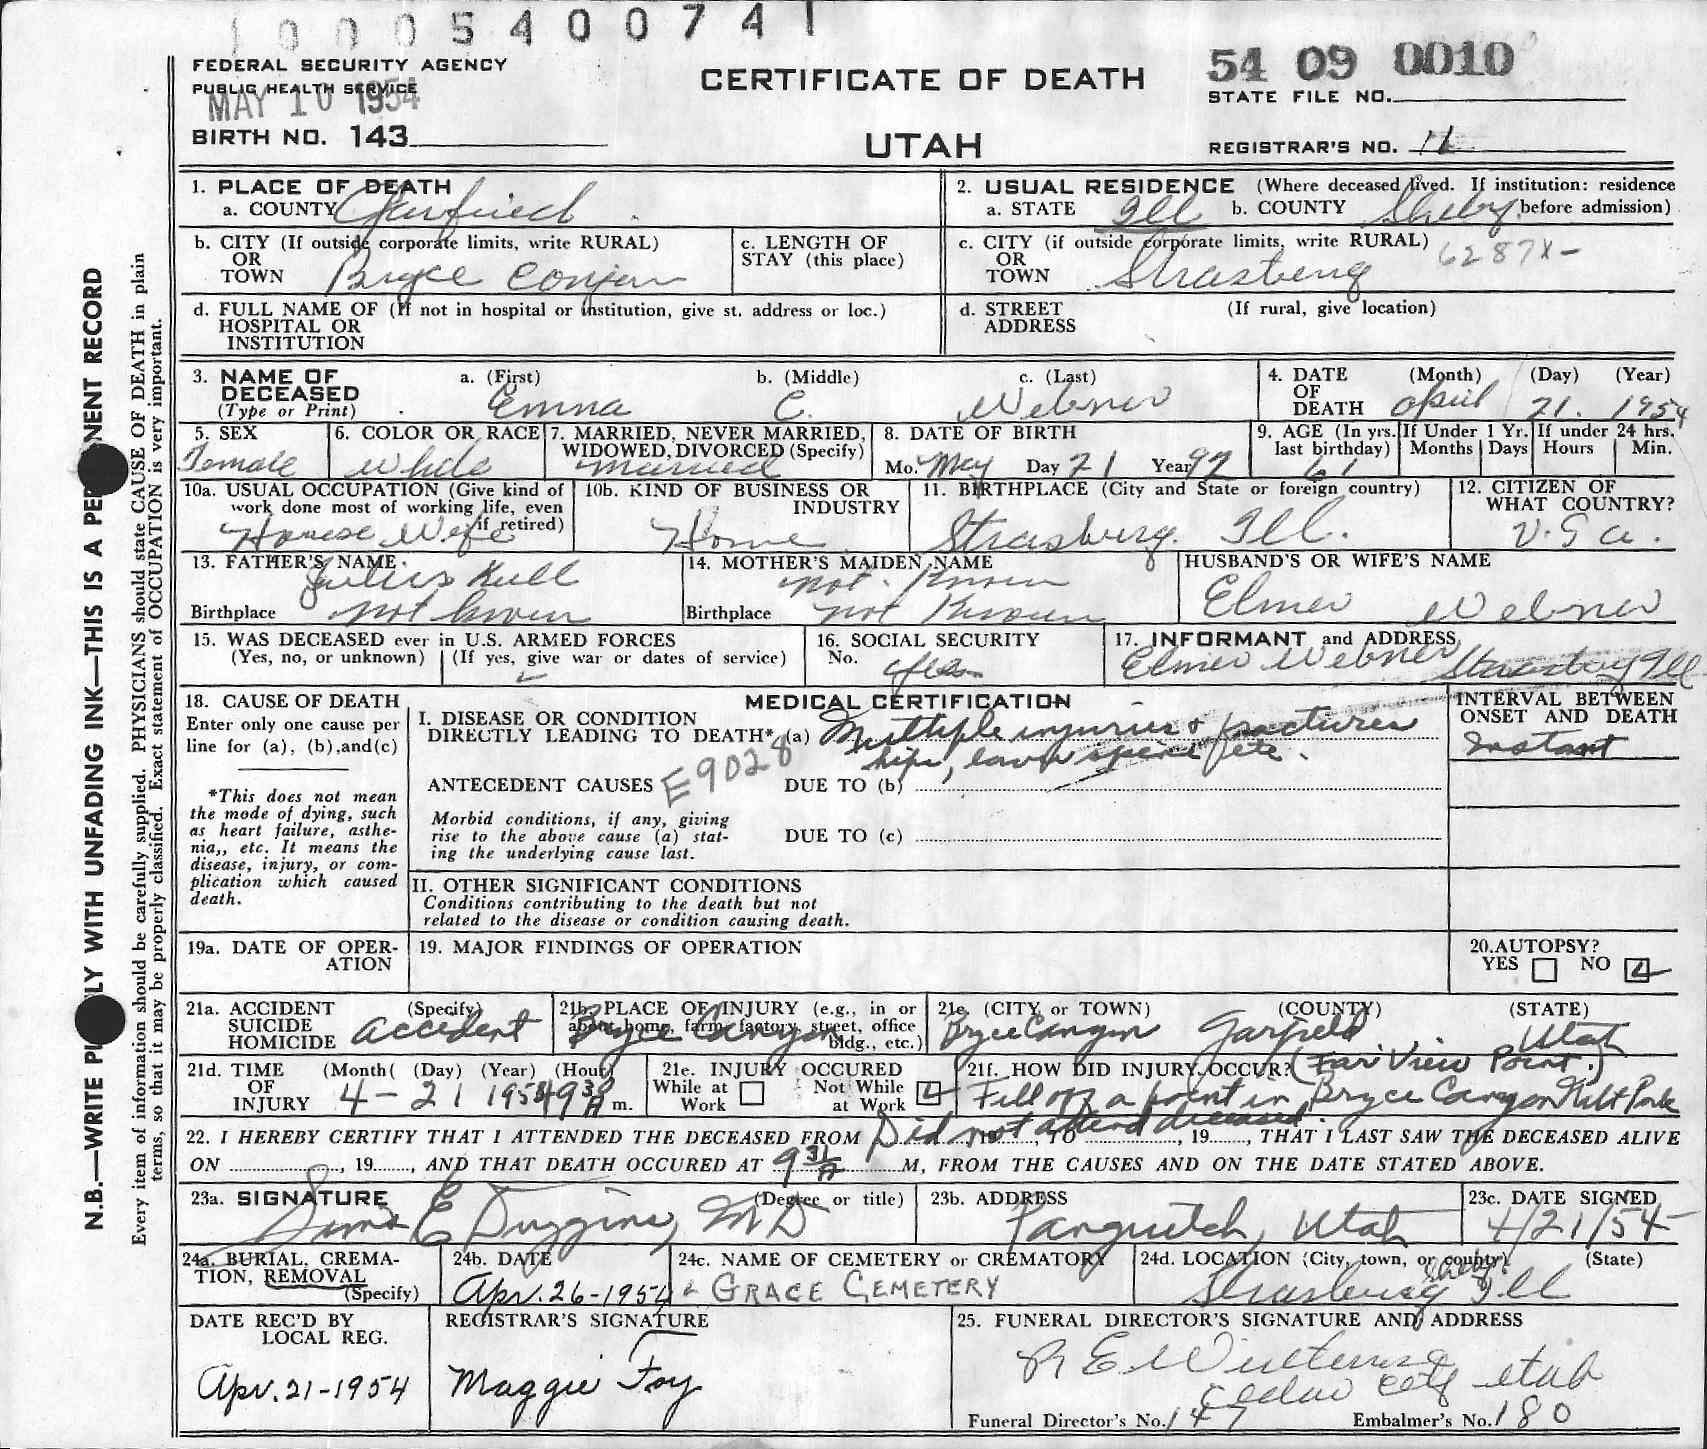 1000540074 1
FEDERAL SECURITY AGENCY
PUBLIC HEALTH SERVICE
MAY 10 1954
BIRTH NO. 143
CERTIFICATE OF DEATH
UTAH
54 09 0010
STATE FILE NO.
REGISTRAR'S NO. 16
N.B.—WRITE PLAINLY WITH UNFADING INK—THIS IS A PERMANENT RECORD
Every item of information should be carefully supplied. PHYSICIANS should state CAUSE OF DEATH in plain
terms, so that it may be properly classified. Exact statement of OCCUPATION is very important.
1. PLACE OF DEATH
a. COUNTY Garfield
2. USUAL RESIDENCE (Where deceased lived. If institution: residence
a. STATE Ill b. COUNTY Shelby before admission)
b. CITY (If outside corporate limits, write RURAL)
OR
TOWN Bryce Conjon
c. LENGTH OF
STAY (this place)
c. CITY (if outside corporate limits, write RURAL) 6287X-
OR
TOWN Strasberg
d. FULL NAME OF (If not in hospital or institution, give st. address or loc.)
HOSPITAL OR
INSTITUTION
d. STREET (If rural, give location)
ADDRESS
3. NAME OF DECEASED (Type or Print)
a. (First) Emma
b. (Middle) C.
c. (Last) Webner
4. DATE OF DEATH (Month) (Day) (Year)
April 21. 1954
5. SEX
Female
6. COLOR OR RACE
White
7. MARRIED, NEVER MARRIED,
WIDOWED, DIVORCED (Specify)
Married
8. DATE OF BIRTH
Mo. May Day 21 Year 92
9. AGE (In yrs. last birthday)
61
If Under 1 Yr. Months Days
If under 24 hrs. Hours Min.
10a. USUAL OCCUPATION (Give kind of
work done most of working life, even
if retired)
House Wife
10b. KIND OF BUSINESS OR
INDUSTRY
Home
11. BIRTHPLACE (City and State or foreign country)
Strasburg. Ill.
12. CITIZEN OF
WHAT COUNTRY?
U.S a.
13. FATHER'S NAME
Julius Kull
Birthplace not known
14. MOTHER'S MAIDEN NAME
not known
Birthplace not Known
HUSBAND'S OR WIFE'S NAME
Elmer Webner
15. WAS DECEASED ever in U.S. ARMED FORCES
(Yes, no, or unknown) (If yes, give war or dates of service)
16. SOCIAL SECURITY
No.
17. INFORMANT and ADDRESS
Elmer Webner Strasburg Ill
18. CAUSE OF DEATH
Enter only one cause per
line for (a), (b), and (c)
*This does not mean
the mode of dying, such
as heart failure, asthe-
nia,, etc. It means the
disease, injury, or com-
plication which caused
death.
MEDICAL CERTIFICATION
I. DISEASE OR CONDITION
DIRECTLY LEADING TO DEATH* (a) Multiple injuries & fractures
hips, lower spine etc.
ANTECEDENT CAUSES E9028 DUE TO (b)
Morbid conditions, if any, giving
rise to the above cause (a) stat- DUE TO (c)
ing the underlying cause last.
INTERVAL BETWEEN
ONSET AND DEATH
Instant
II. OTHER SIGNIFICANT CONDITIONS
Conditions contributing to the death but not
related to the disease or condition causing death.
19a. DATE OF OPER-
ATION
19. MAJOR FINDINGS OF OPERATION
20. AUTOPSY?
YES NO
21a. ACCIDENT (Specify)
SUICIDE
HOMICIDE
Accident
21b. PLACE OF INJURY (e.g., in or
about home, farm, factory, street, office
bldg., etc.)
Bryce Canyon
21c. (CITY or TOWN) (COUNTY) (STATE)
Bryce Canyon Garfield Utah
21d. TIME OF INJURY (Month) (Day) (Year) (Hour)
4-21 1954 9 30 A m.
21e. INJURY OCCURED
While at Work Not While at Work
21f. HOW DID INJURY OCCUR? (Fair View Point.)
Fell off a point in Bryce Canyon Natl Park
22. I HEREBY CERTIFY THAT I ATTENDED THE DECEASED FROM Did not attend deceased, 19, TO, 19, THAT I LAST SAW THE DECEASED ALIVE
ON, 19, AND THAT DEATH OCCURED AT 9 31 A M, FROM THE CAUSES AND ON THE DATE STATED ABOVE.
23a. SIGNATURE (Degree or title)
Sims E Duggins, MD
23b. ADDRESS
Panguitch, Utah
23c. DATE SIGNED
4/21/54
24a. BURIAL, CREMA-
TION, REMOVAL
(Specify)
24b. DATE
Apr. 26-1954
24c. NAME OF CEMETERY or CREMATORY
GRACE CEMETERY
24d. LOCATION (City, town, or county) (State)
Shelby
Strasburg Ill
DATE REC'D BY
LOCAL REG.
Apr. 21-1954
REGISTRAR'S SIGNATURE
Maggie Foy
25. FUNERAL DIRECTOR'S SIGNATURE AND ADDRESS
Cedar City Utah
Funeral Director's No. 147 Embalmer's No. 180